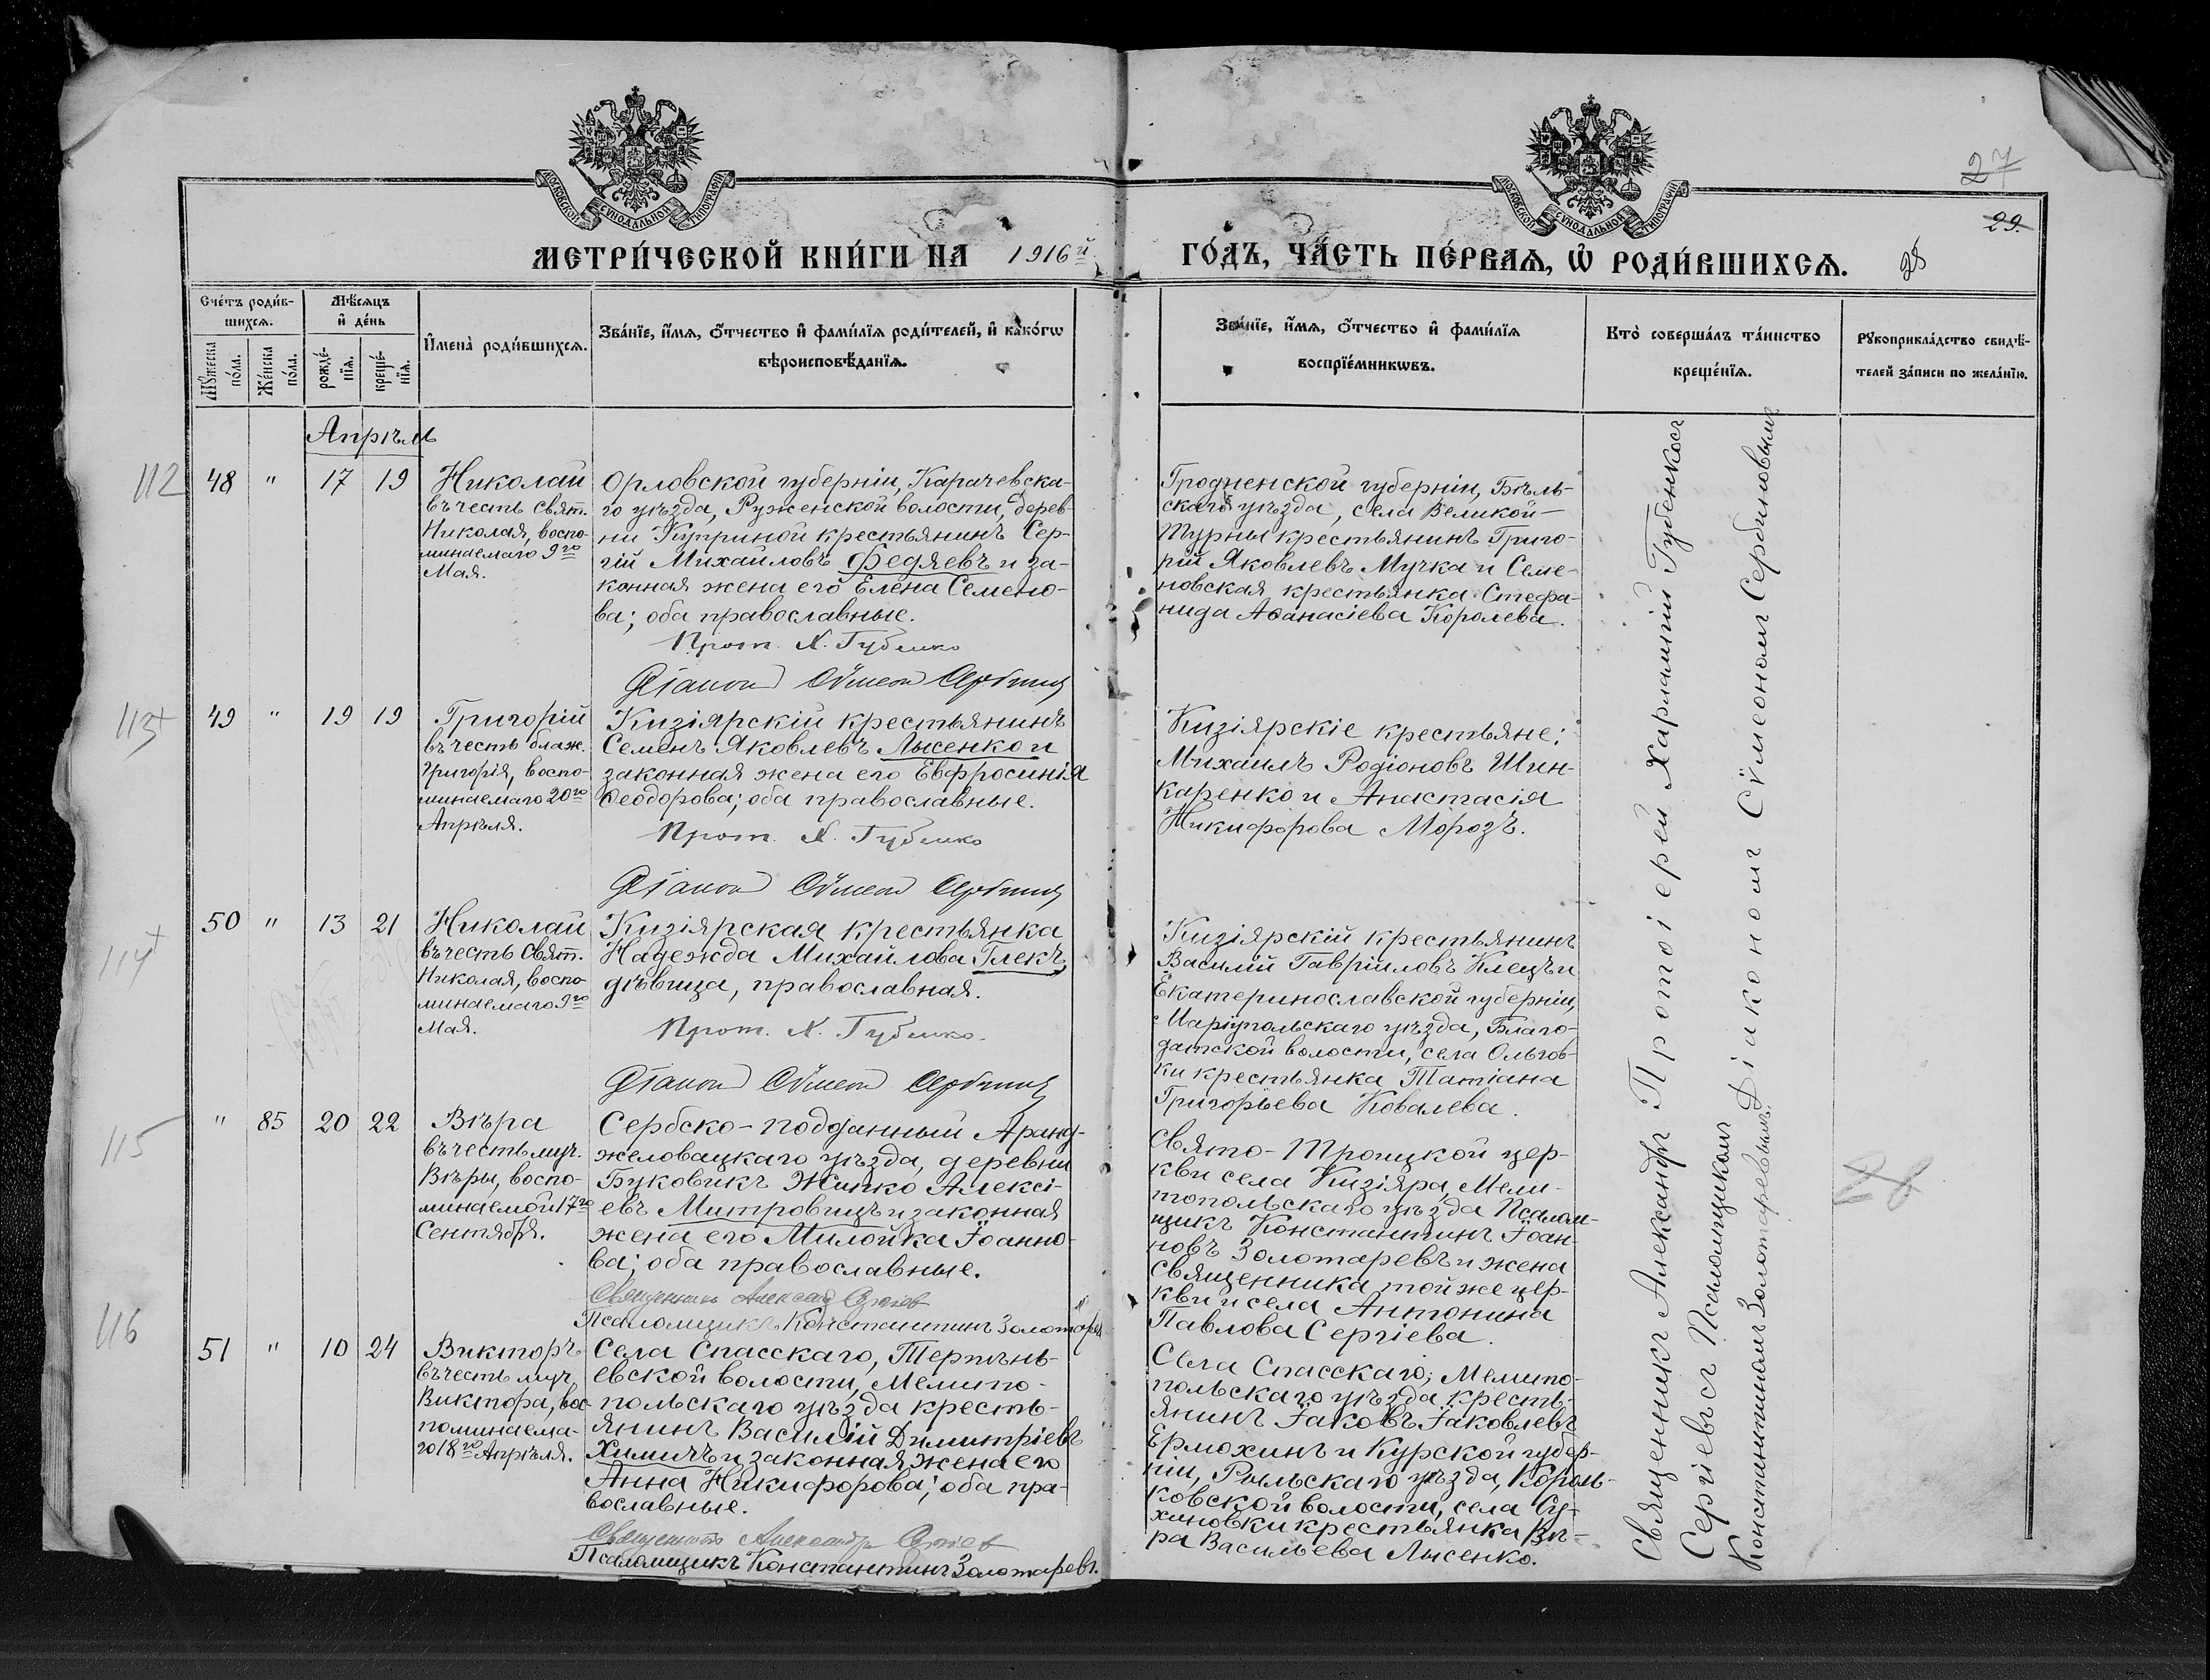 27
29
28
МОСКОВСКОЙ СѴНОДАЛЬНОЙ ТИПОГРАФІИ
МОСКОВСКОЙ СѴНОДАЛЬНОЙ ТИПОГРАФІИ
МЕТРИ́ЧЕСКОЙ КНИ́ГИ НА 1916й ГО́ДЪ, ЧА́СТЬ ПЕ́РВАѦ, Ѡ҆ РОДИ́ВШИХСѦ.
Сче́тъ роди́в-
шихсѧ.
Мѣ́сѧцъ
и҆ де́нь
Мꙋ́жеска
по́ла.
Же́нска
по́ла.
рожде́-
нїѧ.
креще́-
нїѧ.
И҆мена̀ роди́вшихсѧ.
Зва́нїе, и҆́мѧ, ѻ҆́тчество и҆ фами́лїѧ роди́телей, и҆ како́гѡ
вѣроисповѣ́данїѧ.
Зва́нїе, и҆́мѧ, ѻ҆́тчество и҆ фами́лїѧ
воспрїе́мникѡвъ.
Кто̀ соверша́лъ та́инство
креще́нїѧ.
Рꙋкоприкла́дство свидѣ́-
телей за́писи по жела́нїю.
Апрѣль
112
48 " 17 19
Николай
въ честь Свят.
Николая, воспо-
минаемаго 9го
Мая.
Орловской губерніи, Карачевска-
го уѣзда, Руженской волости, дерев-
ни Куприной крестьянинъ Сер-
гій Михайловъ Федяевъ и за-
конная жена его Елена Семено-
ва; оба православные.
Прот. Х. Губенко
Діаконъ Сѵмеонъ Сербиновъ
Гродненской губерніи, Бѣль-
скаго уѣзда, села Великой-
Турны крестьянинъ Григо-
рій Яковлевъ Мучка и Семе-
новская крестьянка Стефа-
нида Аѳанасіева Королева.
113
49 " 19 19
Григорій
въ честь блаж.
Григорія, воспо-
минаемаго 20го
Апрѣля.
Кизіярскій крестьянинъ
Семенъ Яковлевъ Лысенко и
законная жена его Евфросинія
Ѳеодорова; оба православные.
Прот. Х. Губенко
Діаконъ Сѵмеонъ Сербиновъ
Кизіярскіе крестьяне:
Михаилъ Родіоновъ Шин-
каренко и Анастасія
Никифорова Морозъ.
114
50 " 13 21
Николай
въ честь Свят.
Николая, воспо-
минаемаго 9го
Мая.
Кизіярская крестьянка
Надежда Михайлова Глекъ,
дѣвица, православная.
Прот. Х. Губенко.
Діаконъ Сѵмеонъ Сербиновъ
Кизіярскій крестьянинъ
Василій Гавріиловъ Клецъ и
Екатеринославской губерніи,
Маріупольскаго уѣзда, Благо-
датской волости, села Ольгов-
ки крестьянка Татіана
Григорьева Ковалева.
115
" 85 20 22
Вѣра
въ честь муч.
Вѣры, воспо-
минаемой 17го
Сентября.
Сербско-подданный Аранд-
желовацкаго уѣзда, деревни
Буковикъ Живко Алексі-
евъ Митровицъ и законная
жена его Милойка Іоанно-
ва; оба православные.
Священникъ Александръ Сергіевъ
Псаломщикъ Константинъ Золотаревъ
Свято-Троицкой цер-
кви села Кизіяра, Мели-
топольскаго уѣзда Псалом-
щикъ Константинъ Іоан-
новъ Золотаревъ и жена
священника той же цер-
кви и села Антонина
Павлова Сергіева.
116
51 " 10 24
Викторъ
въ честь муч.
Виктора, вос-
поминаема-
го 18го Апрѣля.
Села Спасскаго, Терпѣнь-
евской волости, Мелито-
польскаго уѣзда кресть-
янинъ Василій Димитріевъ
Химичъ и законная жена его
Анна Никифорова; оба пра-
вославные.
Священникъ Александръ Сергіевъ
Псаломщикъ Константинъ Золотаревъ.
Села Спасскаго, Мелито-
польскаго уѣзда кресть-
янинъ Іаковъ Іаковлевъ
Ермохинъ и Курской губер-
ніи, Рыльскаго уѣзда, Король-
ковской волости, села Су-
хановки крестьянка Вѣ-
ра Васильева Лысенко.
Протоіерей Харлампій Губенко съ
Діакономъ Сѵмеономъ Сербиновымъ
Священникъ Александръ
Сергіевъ съ Псаломщикомъ
Константиномъ Золотаревымъ.
28